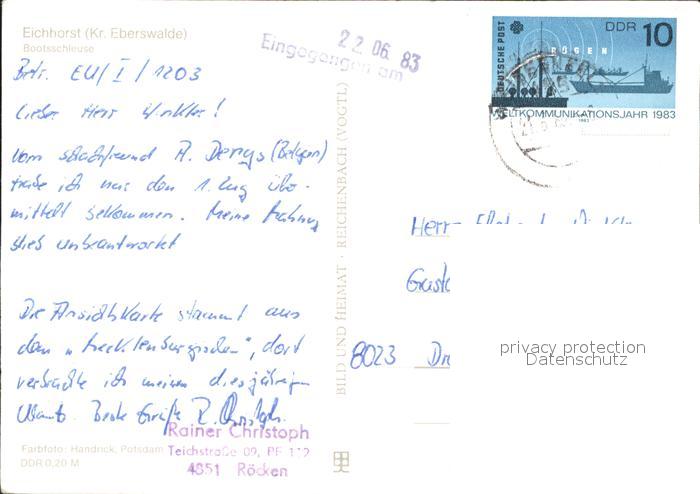 Eichhorst (Kr. Eberswalde)
Bootsschleuse
Eingegangen am
22.06.83
DEUTSCHE POST
DDR 10
RÜGEN
WELTKOMMUNIKATIONSJAHR 1983
Betr. EU/I/1203
Lieber Herr Winkler!
Vom Schachfreund A. Denys (Belgien)
habe ich nur den 1. Zug über-
mittelt bekommen. Meine Mahnung
blieb unbeantwortet
Die Ansichtskarte stammt aus
dem "Mecklenburgischen", dort
verbrachte ich meinen diesjährigen
Urlaub. Beste Grüße R. Christoph.
Rainer Christoph
Teichstraße 09, PF
4851 Röcken
Farbfoto: Handrick, Potsdam
DDR 0,20 M
BILD UND HEIMAT · REICHENBACH (VOGTL)
Herr
8023 Dr
privacy protection
Datenschutz